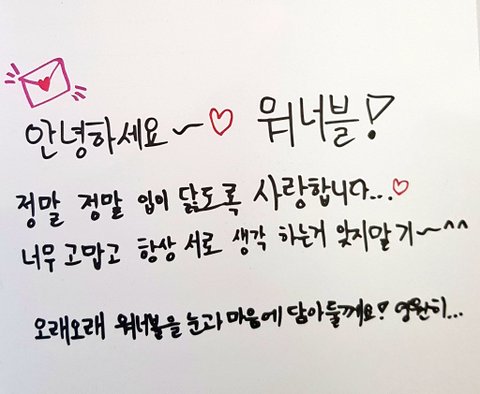 안녕하세요~♡ 워너블!
정말 정말 입이 닳도록 사랑합니다...♡
너무 고맙고 항상 서로 생각 하는거 잊지말기~^^
오래오래 워너블을 눈과 마음에 담아둘께요! 영원히...